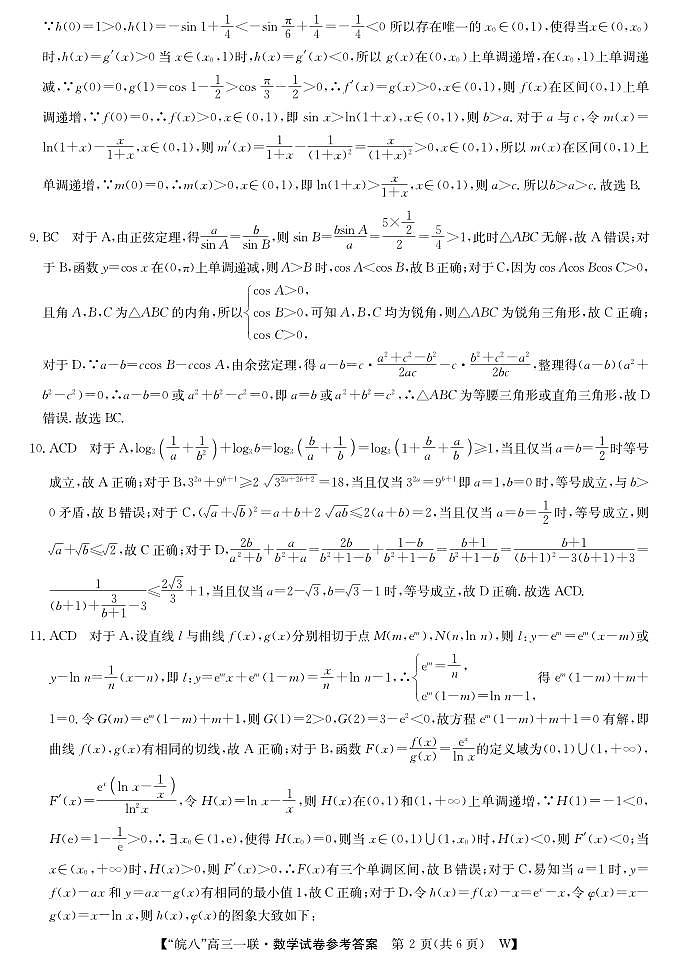 ∵h(0)=1>0,h(1)=−sin 1+1/4<−sin π/6+1/4=−1/4<0 所以存在唯一的 x₀∈(0,1),使得当x∈(0,x₀)
时,h(x)=g′(x)>0 当 x∈(x₀,1)时,h(x)=g′(x)<0,所以 g(x)在(0,x₀)上单调递增,在(x₀,1)上单调递
减,∵g(0)=0,g(1)=cos 1−1/2>cos π/3−1/2>0,∴f′(x)=g(x)>0,x∈(0,1),则 f(x)在区间(0,1)上单
调递增,∵f(0)=0,∴f(x)>0,x∈(0,1),即 sin x>ln(1+x),x∈(0,1),则 b>a. 对于 a 与 c,令 m(x)=
ln(1+x)−x/(1+x),x∈(0,1),则 m′(x)=1/(1+x)−1/(1+x)²=x/(1+x)²>0,x∈(0,1),所以 m(x)在区间(0,1)上
单调递增,∵m(0)=0,∴m(x)>0,x∈(0,1),即 ln(1+x)>x/(1+x),x∈(0,1),则 a>c. 所以b>a>c. 故选 B.
9. BC 对于 A,由正弦定理,得a/sin A=b/sin B,则 sin B=bsin A/a=(5×1/2)/2=5/4>1,此时△ABC 无解,故 A 错误;对
于 B,函数 y=cos x 在(0,π)上单调递减,则 A>B 时,cos A<cos B,故 B 正确;对于 C,因为 cos Acos Bcos C>0,
且角 A,B,C 为△ABC 的内角,所以{cos A>0, cos B>0, cos C>0, 可知 A,B,C 均为锐角,则△ABC 为锐角三角形,故 C 正确;
对于 D,∵a−b=ccos B−ccos A,由余弦定理,得 a−b=c·(a²+c²−b²)/2ac−c·(b²+c²−a²)/2bc,整理得(a−b)(a²+
b²−c²)=0,∴a−b=0 或 a²+b²−c²=0,即 a=b 或 a²+b²=c²,∴△ABC 为等腰三角形或直角三角形,故 D
错误. 故选 BC.
10. ACD 对于 A,log₃(1/a+1/b²)+log₃b=log₃(b/a+1/b)=log₃(1+b/a+a/b)≥1,当且仅当 a=b=1/2时等号
成立,故 A 正确;对于 B,3²ᵃ+9ᵇ⁺¹≥2√(3²ᵃ⁺²ᵇ⁺²)=18,当且仅当 3²ᵃ=9ᵇ⁺¹即 a=1,b=0 时,等号成立,与 b>
0 矛盾,故 B 错误;对于 C,(√a+√b)²=a+b+2√ab≤2(a+b)=2,当且仅当 a=b=1/2时,等号成立,则
√a+√b≤√2,故 C 正确;对于 D,2b/(a²+b)+a/(b²+a)=2b/(b²+1−b)+(1−b)/(b²+1−b)=(b+1)/(b²+1−b)=(b+1)/((b+1)²−3(b+1)+3)=
1/((b+1)+3/(b+1)−3)≤2√3/3+1,当且仅当 a=2−√3,b=√3−1 时,等号成立,故 D 正确. 故选 ACD.
11. ACD 对于 A,设直线 l 与曲线 f(x),g(x)分别相切于点 M(m,eᵐ),N(n,ln n),则 l:y−eᵐ=eᵐ(x−m)或
y−ln n=1/n(x−n),即 l:y=eᵐx+eᵐ(1−m)=x/n+ln n−1,∴{eᵐ=1/n, eᵐ(1−m)=ln n−1, 得 eᵐ(1−m)+m+
1=0. 令 G(m)=eᵐ(1−m)+m+1,则 G(1)=2>0,G(2)=3−e²<0,故方程 eᵐ(1−m)+m+1=0 有解,即
曲线 f(x),g(x)有相同的切线,故 A 正确;对于 B,函数 F(x)=f(x)/g(x)=eˣ/ln x的定义域为(0,1)∪(1,+∞),
F′(x)=eˣ(ln x−1/x)/ln²x,令 H(x)=ln x−1/x,则 H(x)在(0,1)和(1,+∞)上单调递增,∵H(1)=−1<0,
H(e)=1−1/e>0,∴∃x₀∈(1,e),使得 H(x₀)=0,则当 x∈(0,1)∪(1,x₀)时,H(x)<0,则 F′(x)<0;当
x∈(x₀,+∞)时,H(x)>0,则 F′(x)>0,∴F(x)有三个单调区间,故 B 错误;对于 C,易知当 a=1 时,y=
f(x)−ax 和 y=ax−g(x)有相同的最小值 1,故 C 正确;对于 D,令 h(x)=f(x)−x=eˣ−x,令 φ(x)=x−
g(x)=x−ln x,则 h(x),φ(x)的图象大致如下;
【“皖八”高三一联·数学试卷参考答案 第 2 页(共 6 页) W】